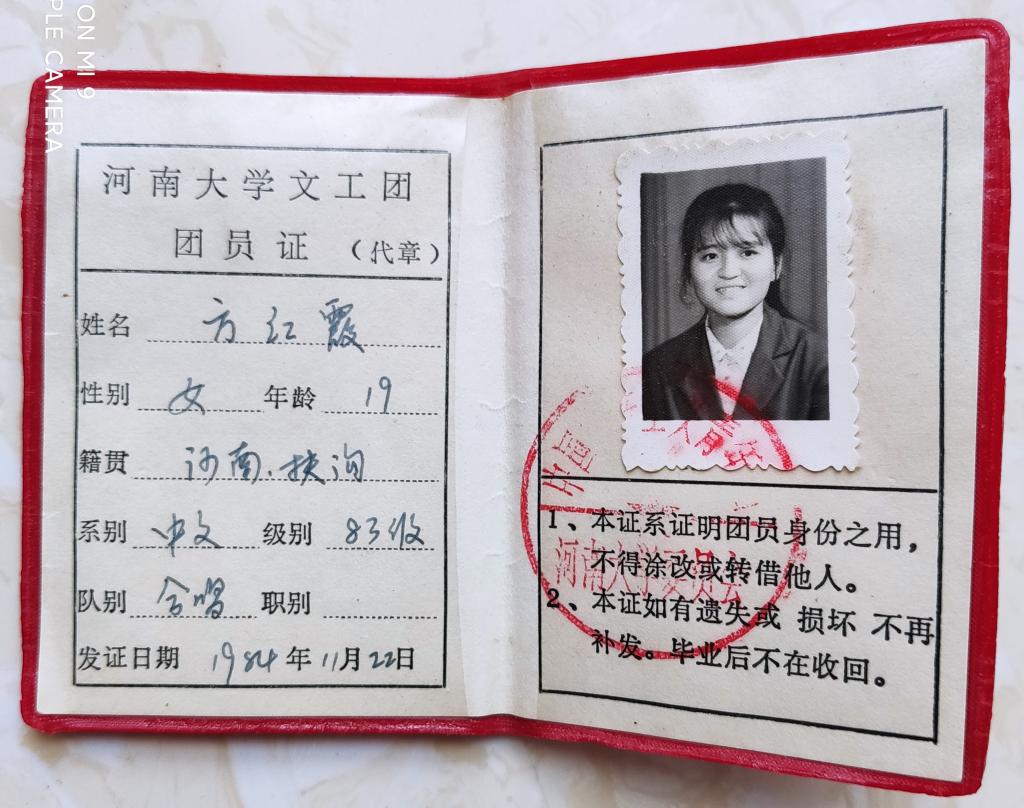 ON MI 9
PLE CAMERA
河南大学文工团
团员证（代章）
姓名 方红霞
性别 女 年龄 19
籍贯 河南.扶沟
系别 中文 级别 83级
队别 合唱 职别
发证日期 1984年11月22日
中国
主义青年
河南大学委员会
1、本证系证明团员身份之用，
不得涂改或转借他人。
2、本证如有遗失或 损坏 不再
补发。毕业后不在收回。